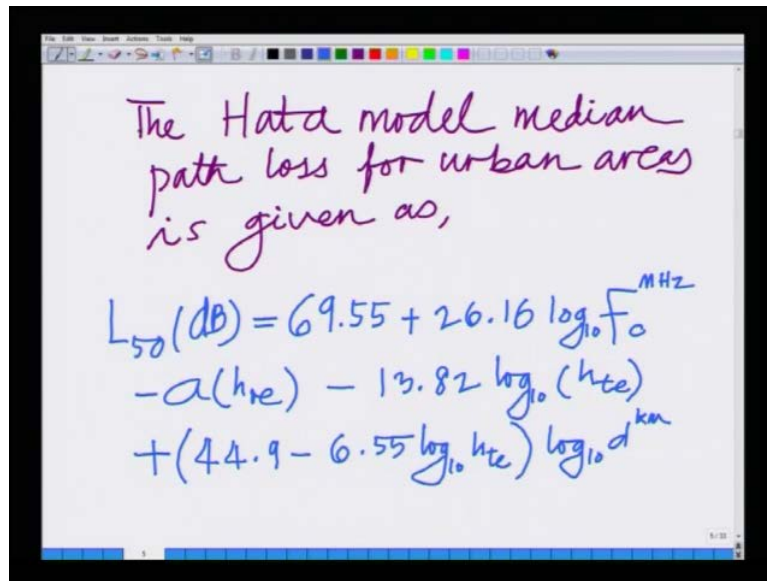 File Edit View Insert Actions Tools Help
The Hata model median
path loss for urban areas
is given as,
L₅₀(dB) = 69.55 + 26.16 log₁₀ f_c^MHz
- a(h_re) - 13.82 log₁₀ (h_te)
+ (44.9 - 6.55 log₁₀ h_te) log₁₀ d^km
5
5/33